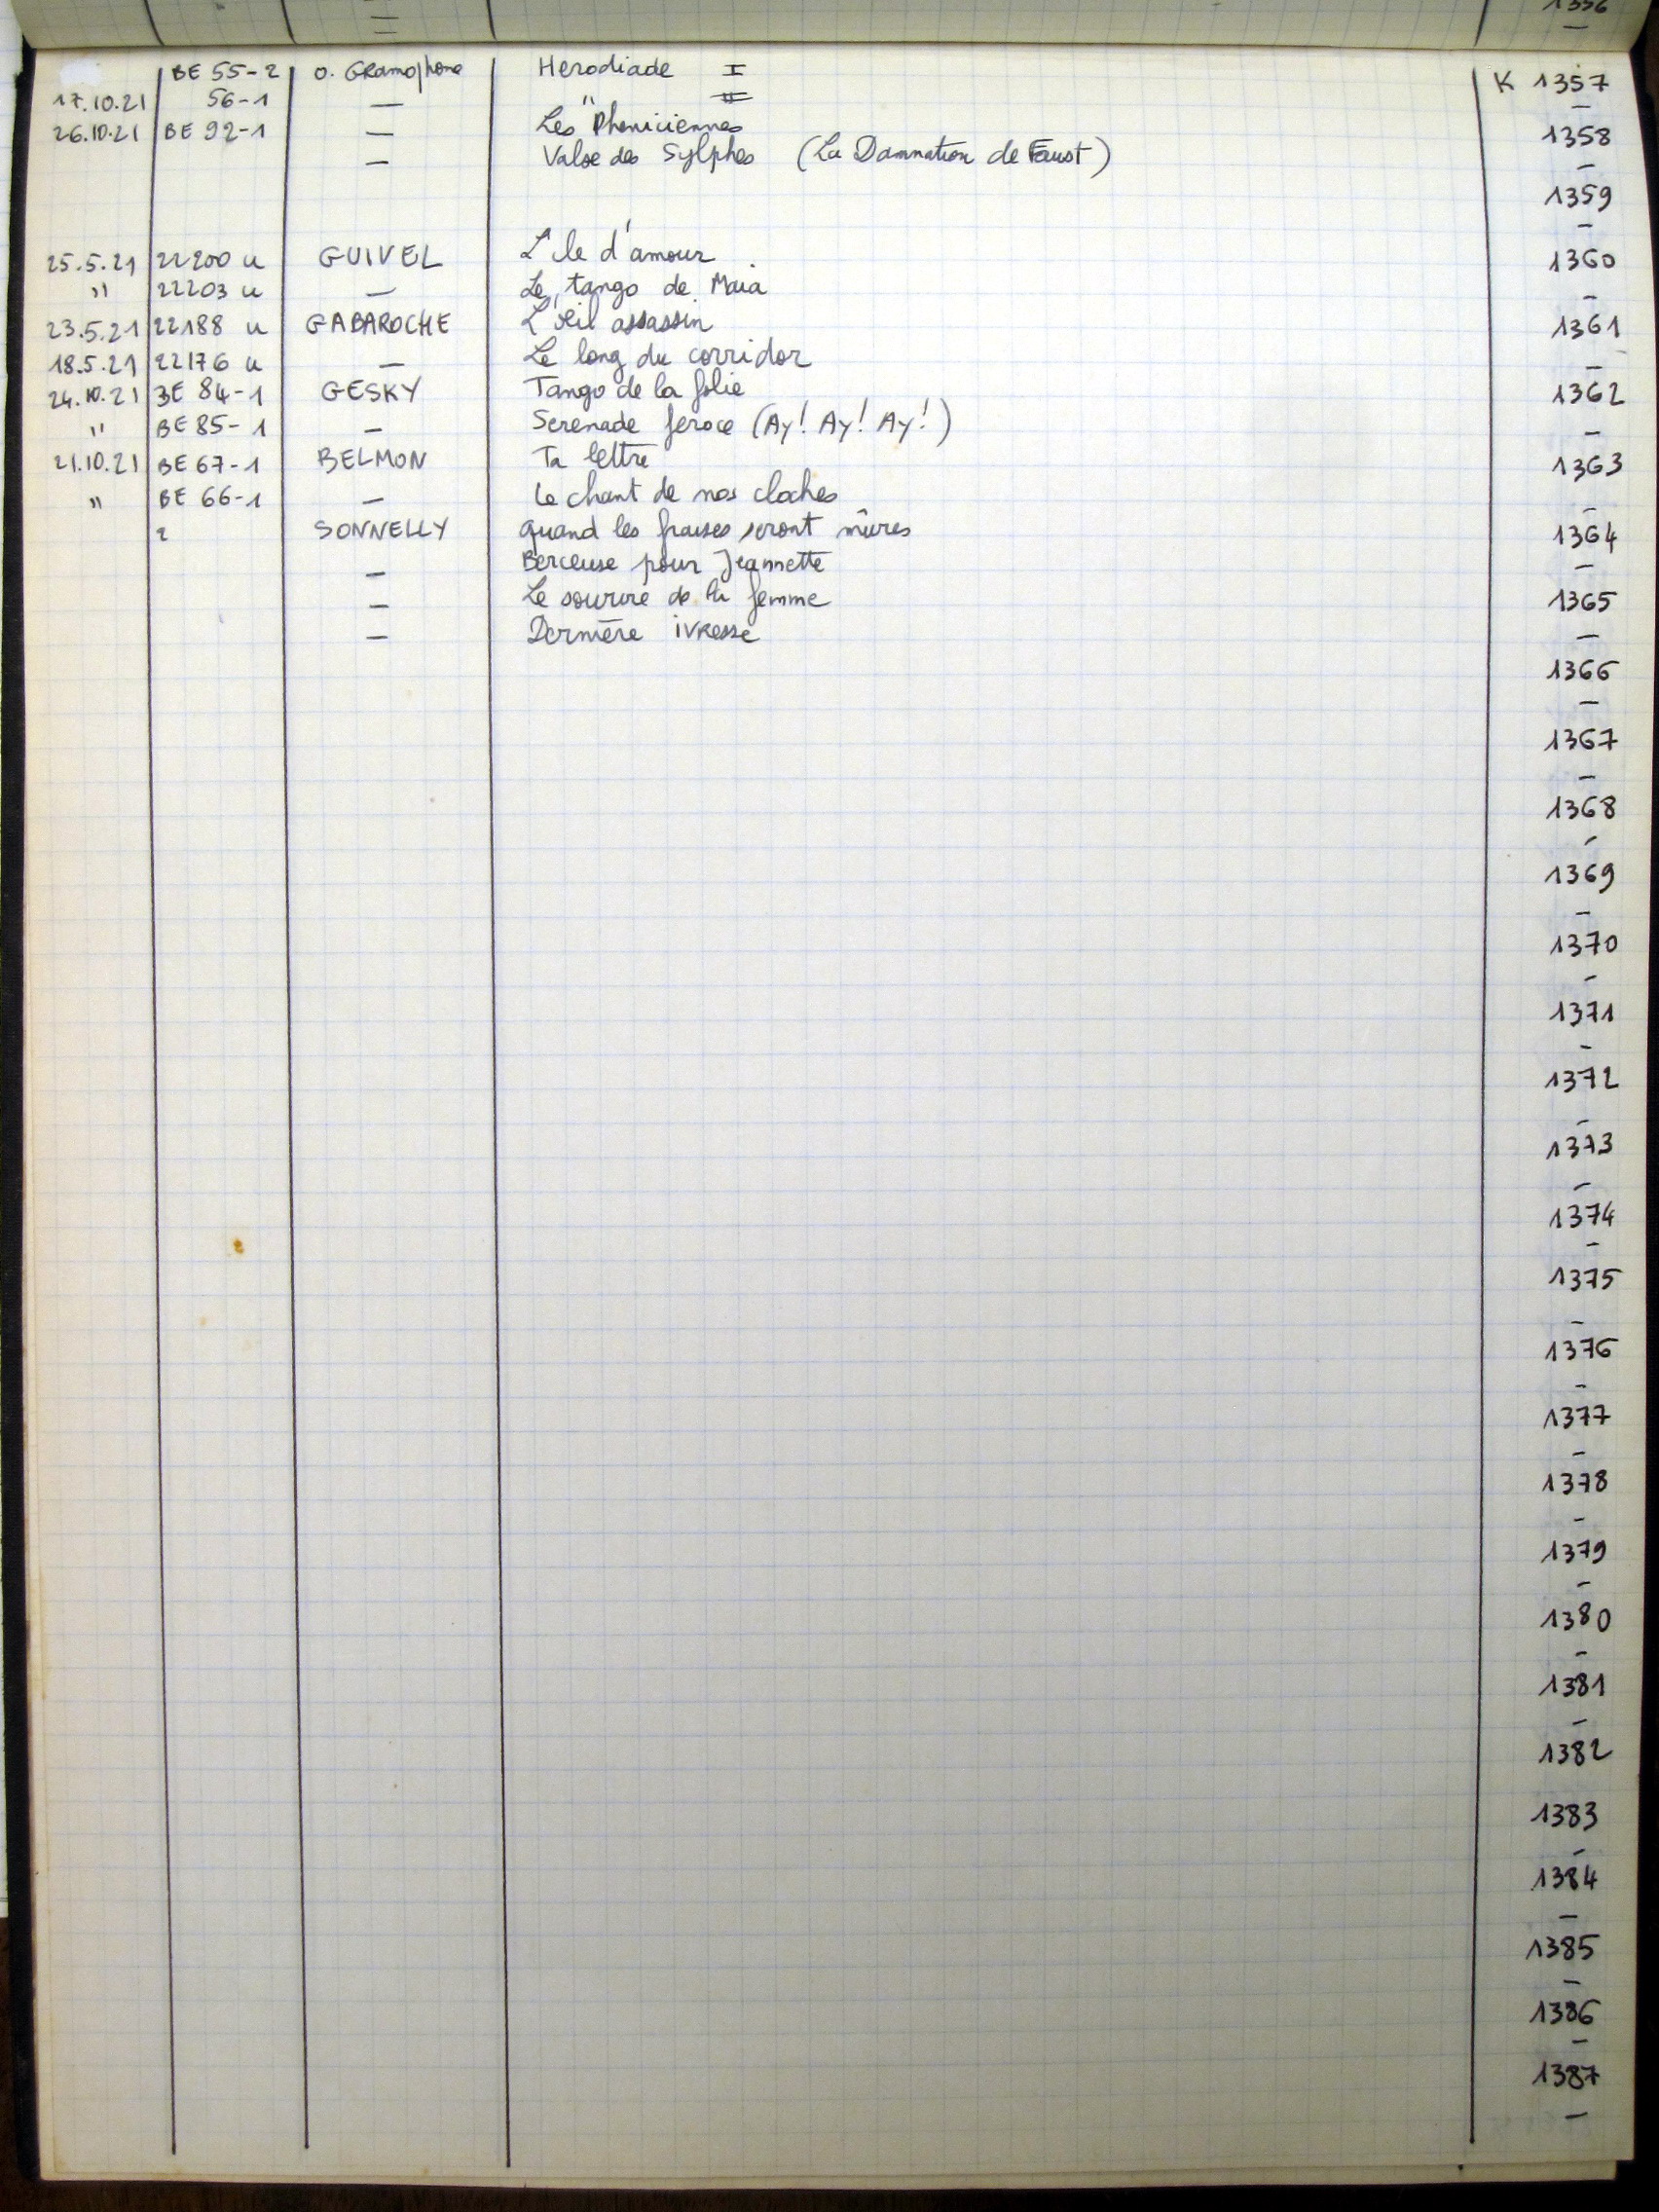 1356
—
BE 55-2 O. Gramophone Herodiade I K 1357
17.10.21 56-1 — " II —
26.10.21 BE 92-1 — Les Pheniciennes 1358
— Valse des Sylphes (La Damnation de Faust) —
1359
—
25.5.21 22200 u GUIVEL L'ile d'amour 1360
" 22203 u — Le tango de Maia —
23.5.21 22188 u GABAROCHE L'œil assassin 1361
18.5.21 22176 u — Le long du corridor —
24.10.21 BE 84-1 GESKY Tango de la folie 1362
" BE 85-1 — Serenade feroce (Ay! Ay! Ay!) —
21.10.21 BE 67-1 BELMON Ta lettre 1363
" BE 66-1 — Le chant de nos cloches —
? SONNELLY Quand les fraises seront mûres 1364
— Berceuse pour Jeannette —
— Le sourire de la femme 1365
— Dernière ivresse —
1366
—
1367
—
1368
—
1369
—
1370
—
1371
—
1372
—
1373
—
1374
—
1375
—
1376
—
1377
—
1378
—
1379
—
1380
—
1381
—
1382
1383
—
1384
—
1385
—
1386
—
1387
—